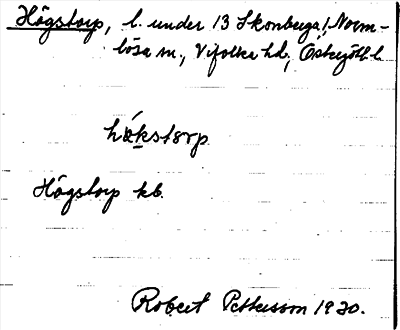 Högstorp, l. under 13 Skonberga, Norm-
lösa sn., Vifolka hd, Östergötl. l.
hö́kstorp
Högstorp kb.
Robert Pettersson 1930.